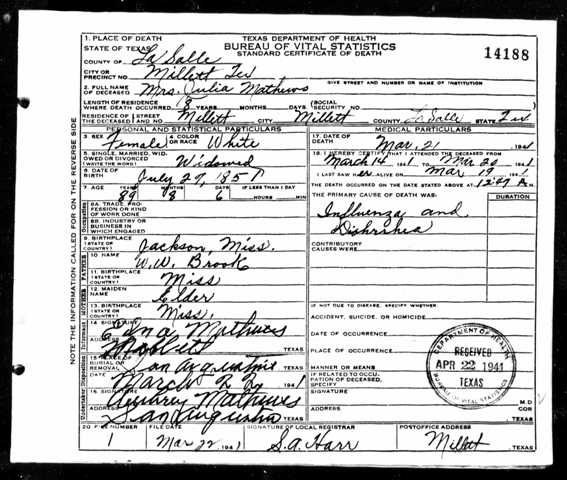 TEXAS DEPARTMENT OF HEALTH
BUREAU OF VITAL STATISTICS
STANDARD CERTIFICATE OF DEATH
14188
1. PLACE OF DEATH
STATE OF TEXAS
COUNTY OF La Salle
CITY OR PRECINCT NO. Millett Tex
GIVE STREET AND NUMBER OR NAME OF INSTITUTION
2. FULL NAME OF DECEASED Mrs. Julia Mathews
LENGTH OF RESIDENCE WHERE DEATH OCCURRED 8 YEARS MONTHS DAYS (SOCIAL SECURITY NO.
RESIDENCE OF THE DECEASED STREET AND NO. Millett CITY Millett COUNTY La Salle STATE Tex
PERSONAL AND STATISTICAL PARTICULARS
3. SEX Female 4. COLOR OR RACE White
5. SINGLE, MARRIED, WIDOWED OR DIVORCED (WRITE THE WORD) Widowed
6. DATE OF BIRTH July 29, 1851
7. AGE YEARS 89 MONTHS 8 DAYS 6 IF LESS THAN 1 DAY HOURS MIN
8A. TRADE, PROFESSION OR KIND OF WORK DONE
8B. INDUSTRY OR BUSINESS IN WHICH ENGAGED
9. BIRTHPLACE (STATE OR COUNTRY) Jackson, Miss.
10. NAME W.W. Brook
11. BIRTHPLACE (STATE OR COUNTRY) Miss
12. MAIDEN NAME Elder
13. BIRTHPLACE (STATE OR COUNTRY) Miss.
14. SIGNATURE Edna Mathews
ADDRESS Millett TEXAS
15. PLACE OF BURIAL OR REMOVAL San Augustine TEXAS
DATE March 22 1941
16. SIGNATURE Aubrey Mathews
ADDRESS San Augustine TEXAS
MEDICAL PARTICULARS
17. DATE OF DEATH Mar. 21 1941
18. I HEREBY CERTIFY THAT I ATTENDED THE DECEASED FROM
March 14 1941 TO Mar 20 1941
I LAST SAW her ALIVE ON Mar 19 1941
THE DEATH OCCURRED ON THE DATE STATED ABOVE AT A M.
THE PRIMARY CAUSE OF DEATH WAS: DURATION
Influenza and
Dishrrhea
CONTRIBUTORY CAUSES WERE:
IF NOT DUE TO DISEASE, SPECIFY WHETHER
ACCIDENT, SUICIDE, OR HOMICIDE
DATE OF OCCURRENCE
PLACE OF OCCURRENCE
MANNER OR MEANS
IF RELATED TO OCCUPATION OF DECEASED, SPECIFY
SIGNATURE
M.D.
ADDRESS
COR
TEXAS
DEPARTMENT OF HEALTH
RECEIVED
APR 22 1941
TEXAS
BUREAU OF VITAL STATISTICS
20 FILE NUMBER 1 FILE DATE Mar 22 1941 SIGNATURE OF LOCAL REGISTRAR S.A. Harr POSTOFFICE ADDRESS Millett, TEXAS
NOTE THE INFORMATION CALLED FOR ON THE REVERSE SIDE
FATHER
MOTHER